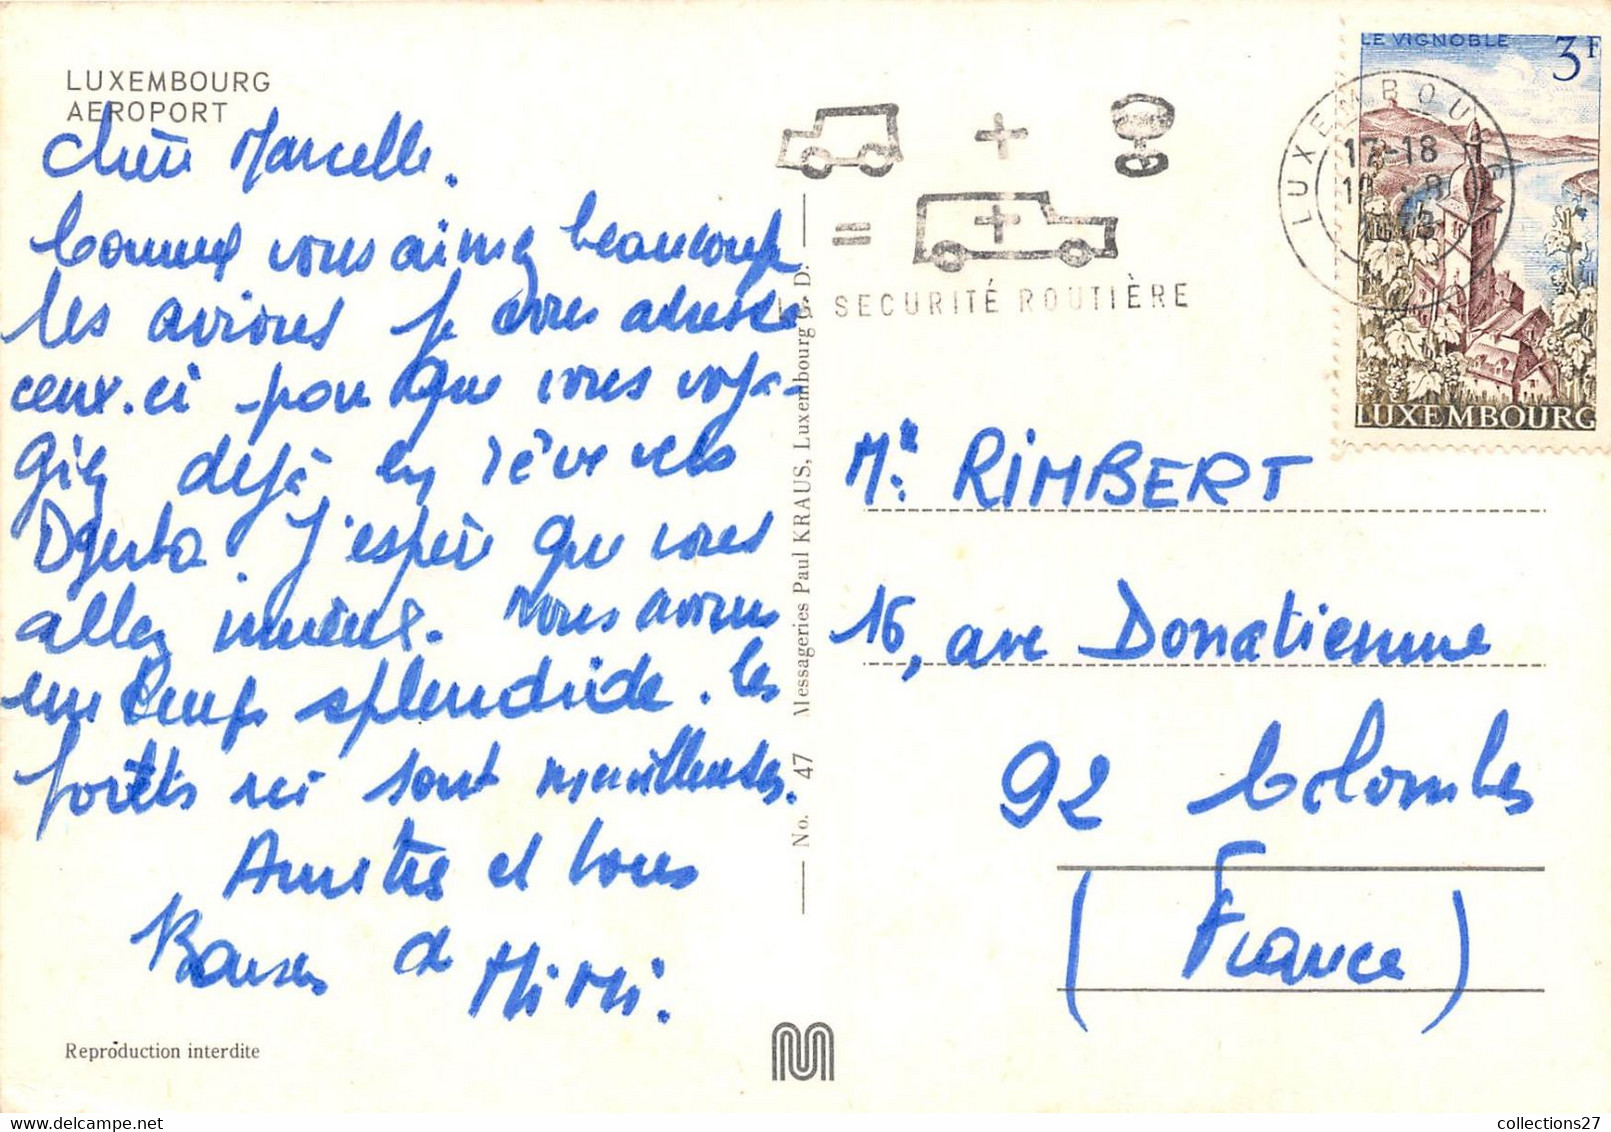 LUXEMBOURG
AEROPORT
Chère Marcelle.
Comme vous aimez beaucoup
les avions je vous adresse
ceux-ci pour que vous voya-
giez déjà en rêve vers
Djerba J'espère que vous
allez mieux. Nous avons
un temps splendide. les
forêts ici sont merveilleuses.
Amitiés et bons
Baisers de
MiMi.
Reproduction interdite
No. 47 Messageries Paul KRAUS, Luxembourg G. D.
= 
SECURITÉ ROUTIÈRE
LUXEMBOURG
17-18
LE VIGNOBLE 3F
LUXEMBOURG
Me RiMBERT
16, ave Donatienne
92 Colombes
(France)
collections27